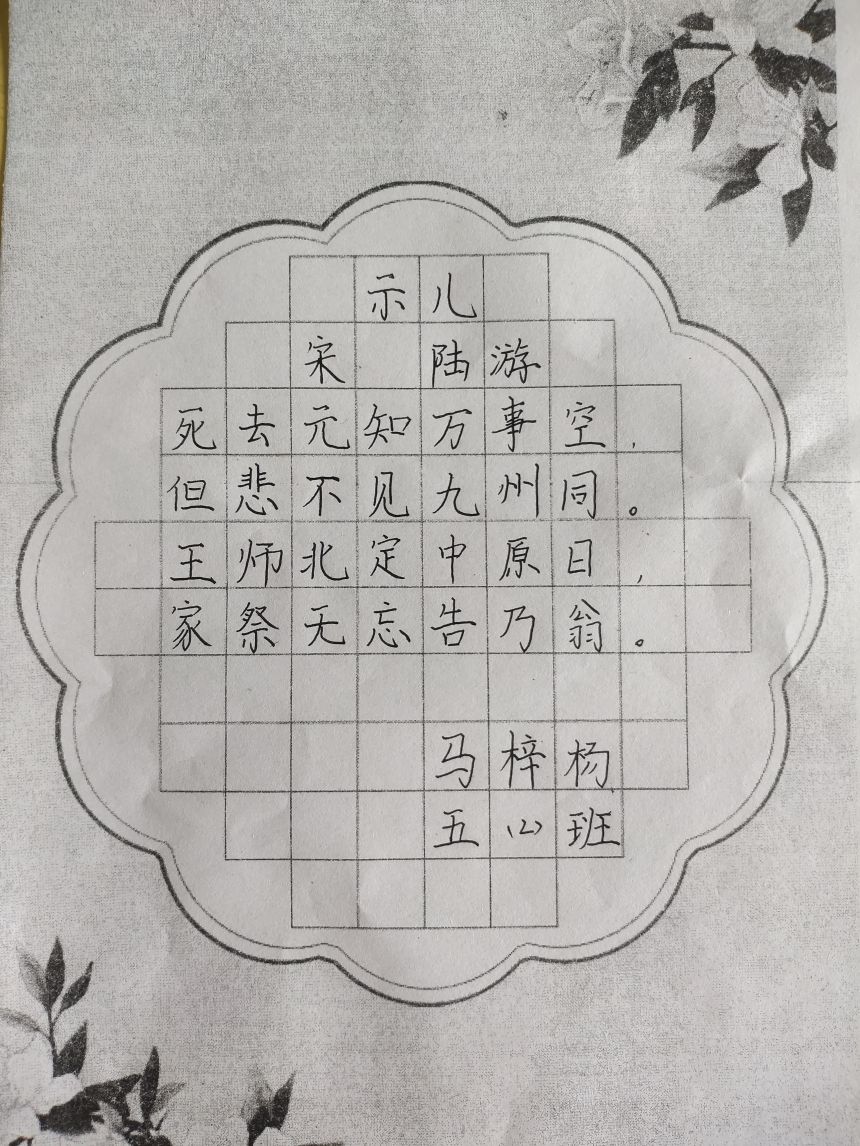 示儿
宋 陆游
死去元知万事空，
但悲不见九州同。
王师北定中原日，
家祭无忘告乃翁。
马梓杨
五(2)班